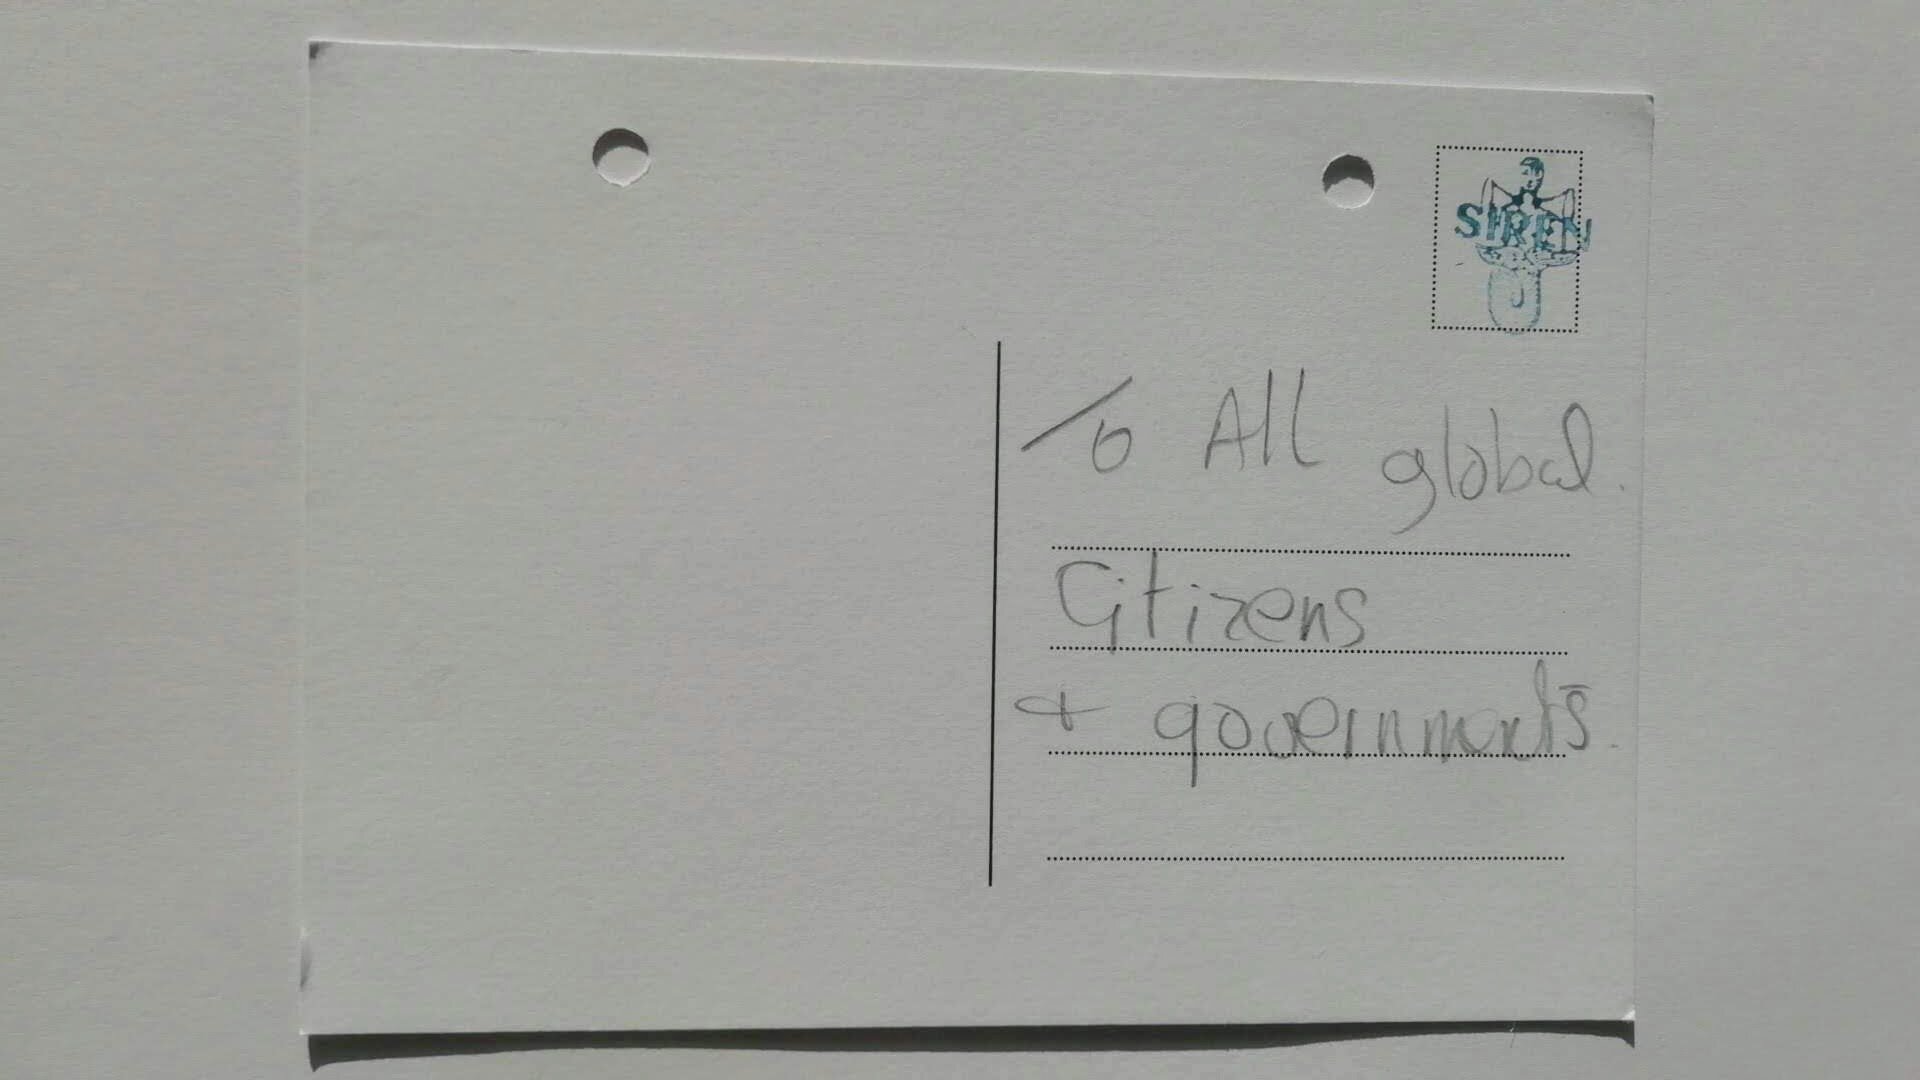 SIREN
To All global.
Citizens
+ governments.